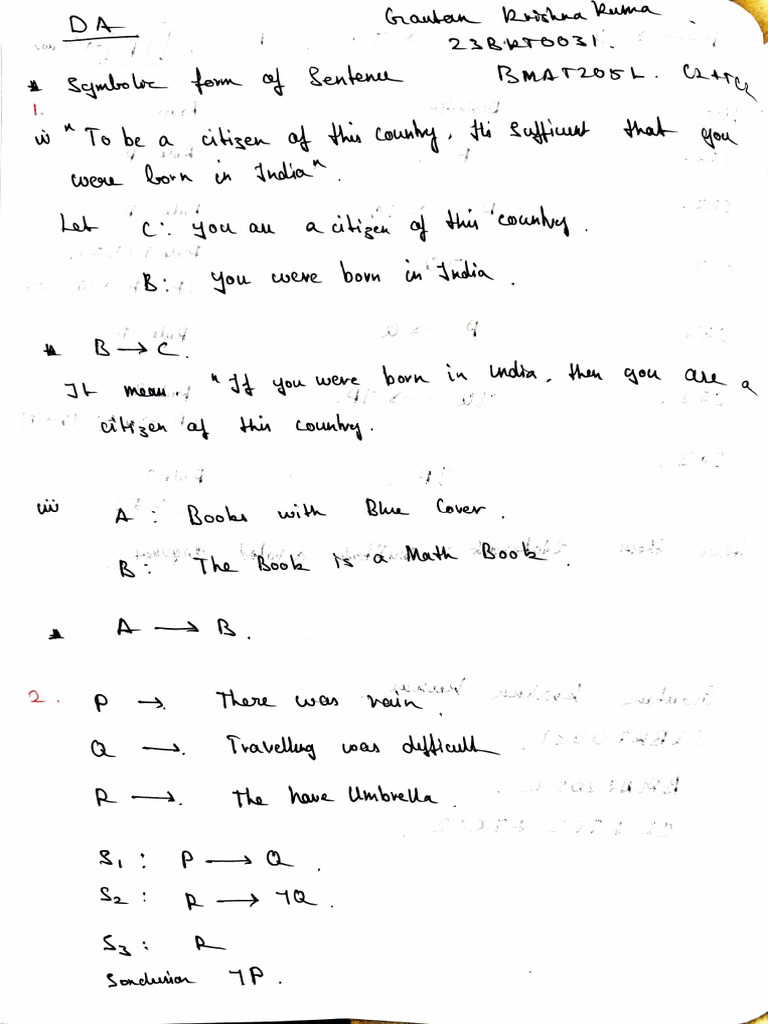 DA
Gautam Krishna Kuma
23BKT0031.
* Symbolic form of Sentence BMAT205L. C2+TC2
1.
i) "To be a citizen of this country, it's sufficent that you
were born in India".
Let C: you are a citizen of this country.
B: you were born in India.
* B → C.
It mean. "If you were born in India, then you are a
citizen of this country.
A: Books with Blue Cover.
B: The Book is a Math Book.
* A → B.
2. P → There was rain.
Q → Travelling was difficult.
R → The have Umbrella.
S1: P → Q.
S2: R → ¬Q.
S3: R
Conclusion ¬P.